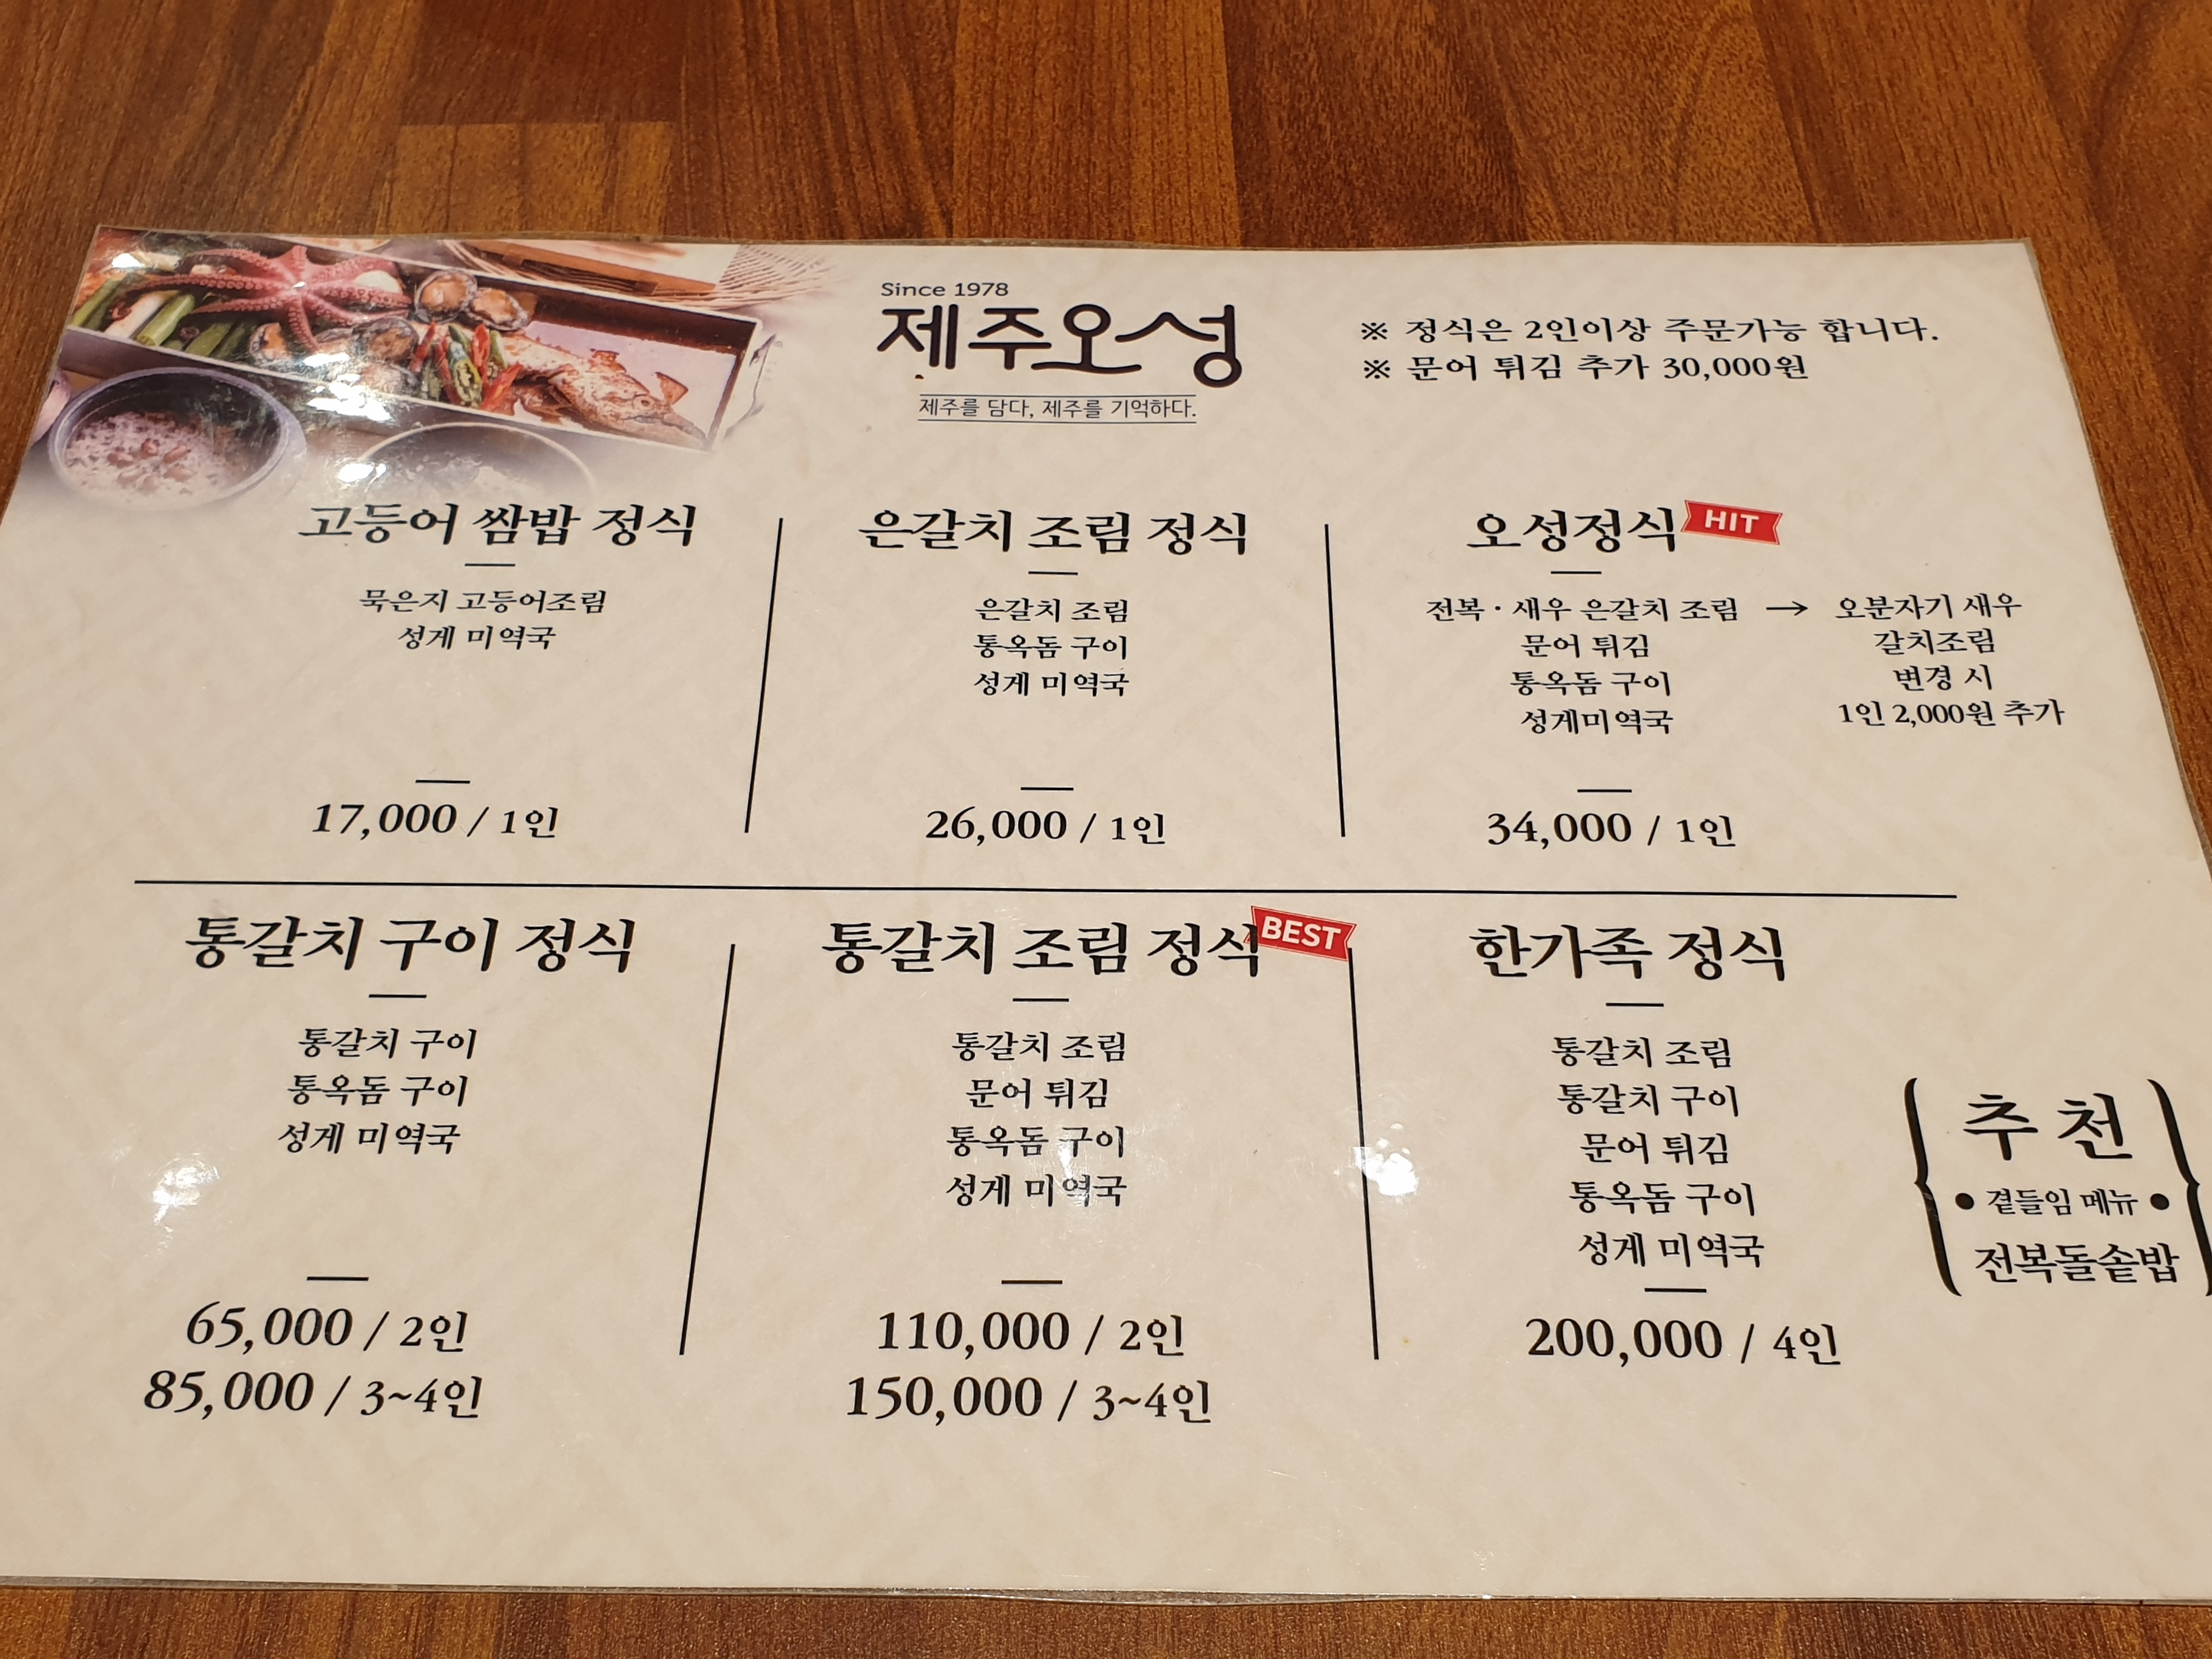 Since 1978
제주오성
제주를 담다, 제주를 기억하다.
※ 정식은 2인이상 주문가능 합니다.
※ 문어 튀김 추가 30,000원
고등어 쌈밥 정식
묵은지 고등어조림
성게 미역국
17,000 / 1인
은갈치 조림 정식
은갈치 조림
통옥돔 구이
성게 미역국
26,000 / 1인
오성정식 HIT
전복 · 새우 은갈치 조림 → 오분자기 새우
갈치조림
변경 시
1인 2,000원 추가
문어 튀김
통옥돔 구이
성게미역국
34,000 / 1인
통갈치 구이 정식
통갈치 구이
통옥돔 구이
성게 미역국
65,000 / 2인
85,000 / 3~4인
통갈치 조림 정식 BEST
통갈치 조림
문어 튀김
통옥돔 구이
성게 미역국
110,000 / 2인
150,000 / 3~4인
한가족 정식
통갈치 조림
통갈치 구이
문어 튀김
통옥돔 구이
성게 미역국
200,000 / 4인
추 천
• 곁들임 메뉴 •
전복돌솥밥